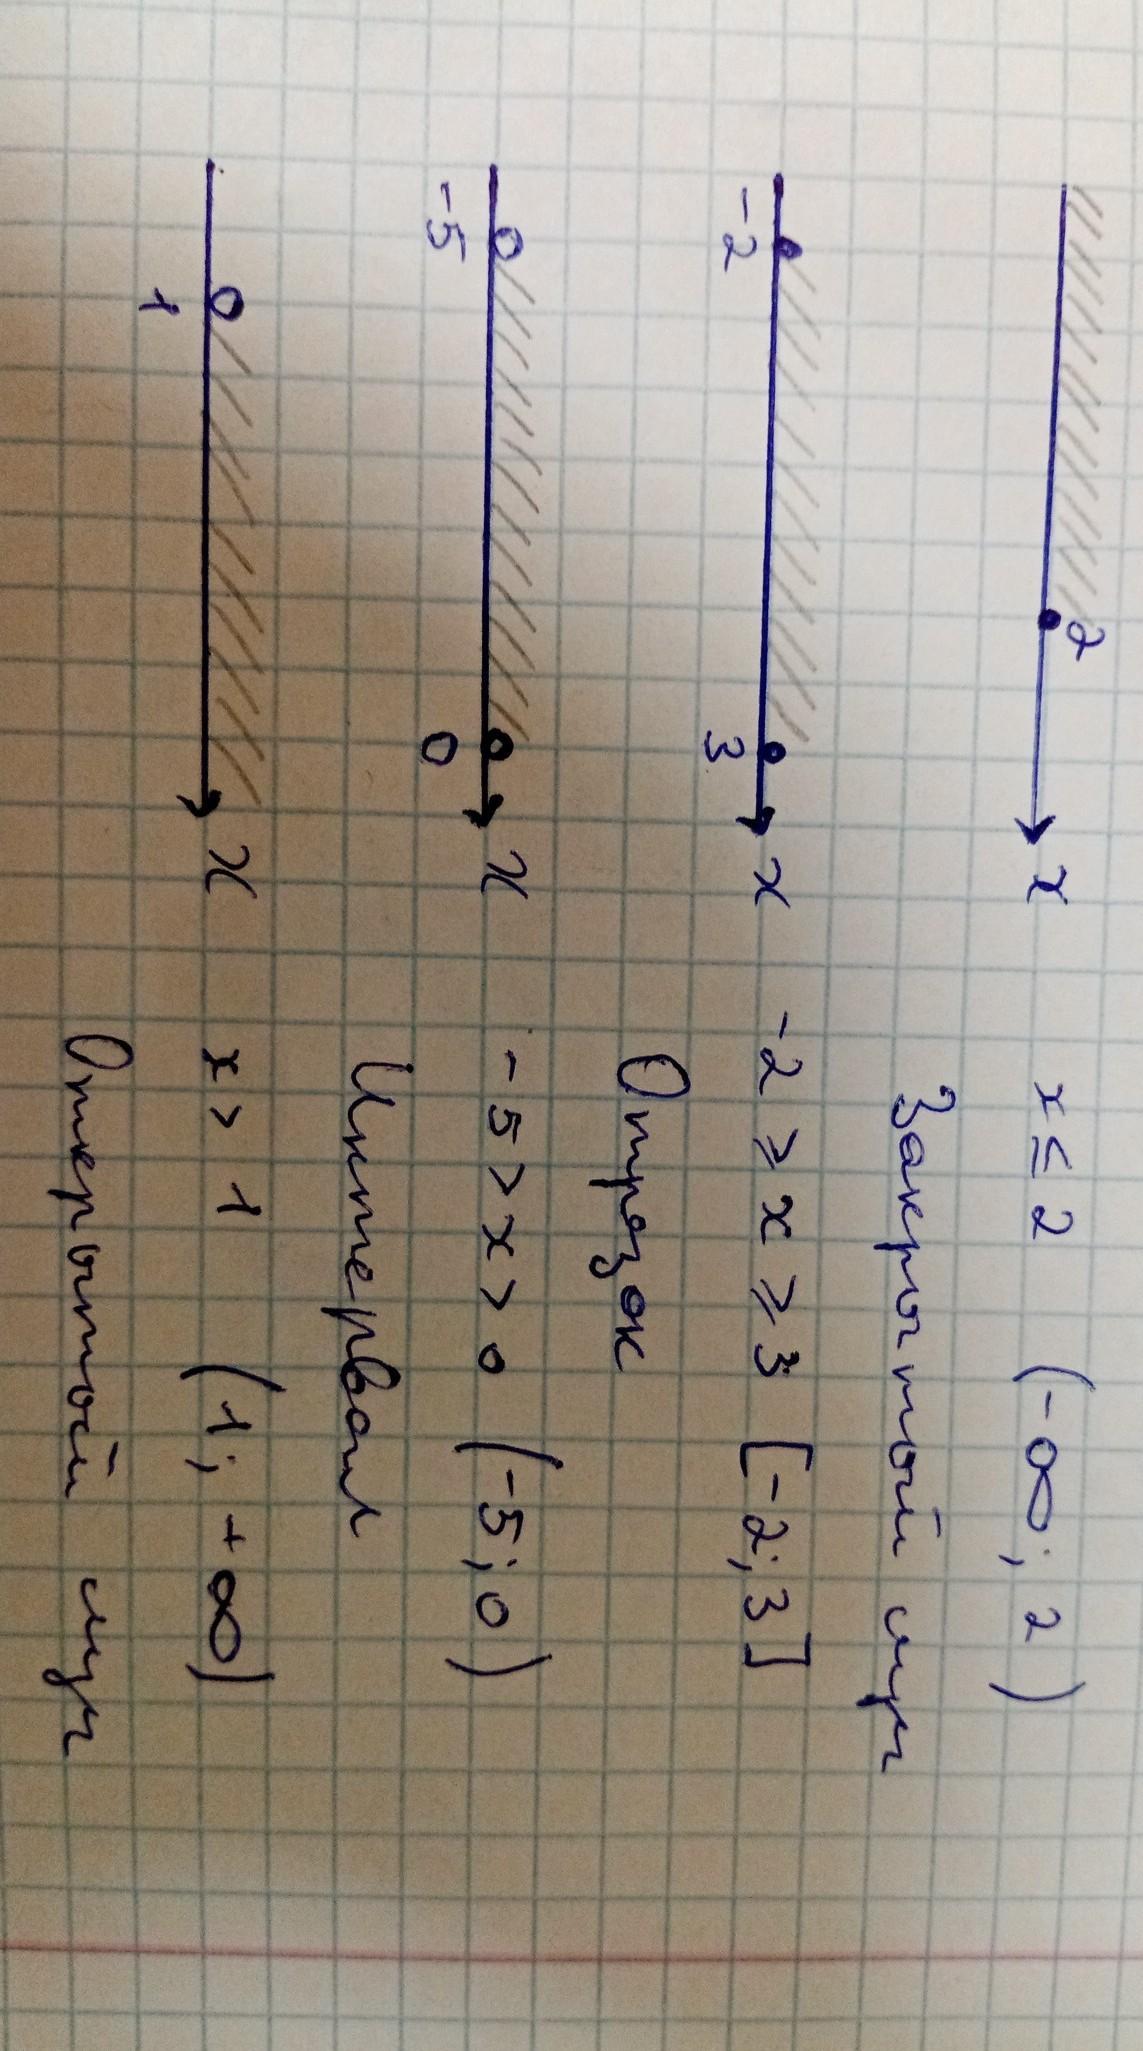 2 x x ≤ 2 (-∞; 2)
Закрытый луч
-2 3 x -2 ⩾ x ⩾ 3 [-2; 3]
Отрезок
-5 0 x -5 > x > 0 (-5; 0)
Интервал
1 x x > 1 (1; +∞)
Открытый луч